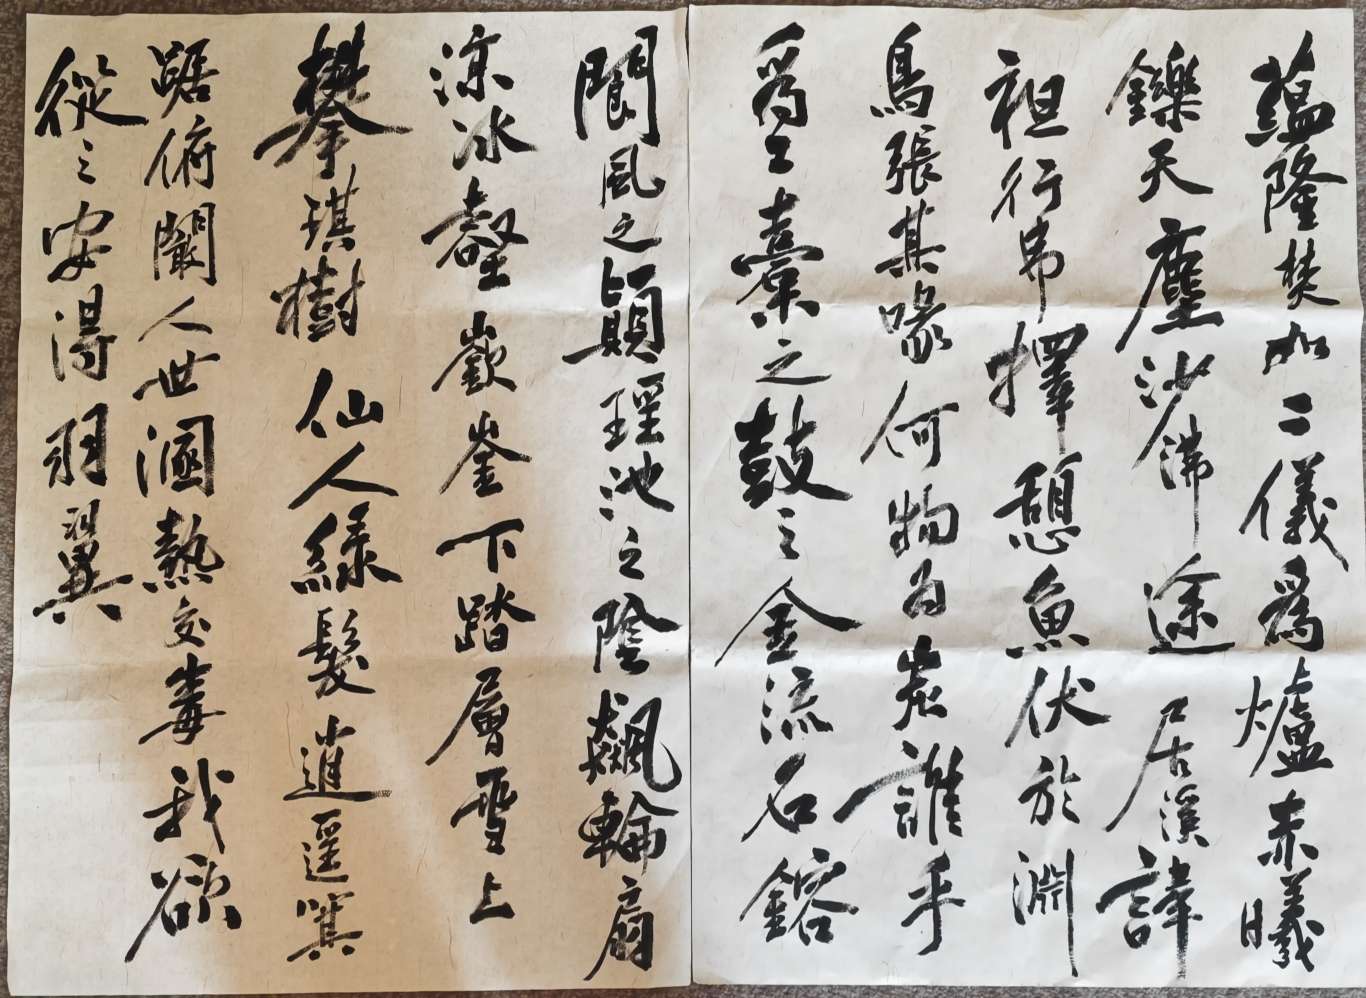 蘊隆焚如二儀爲爐赤曦
鑠天塵沙沸途居溪諱
袒行弗擇憩魚伏於淵
鳥張其喙何物为炭誰乎
爲工橐之鼓之金流石鎔
閬風之顛瑶池之陰飆輪扇
涼冰壑嶔崟下踏層雪上
攀琪樹仙人緑髮逍遥箕
踞俯闞人世溷熱交毒我欲
從之安得羽翼